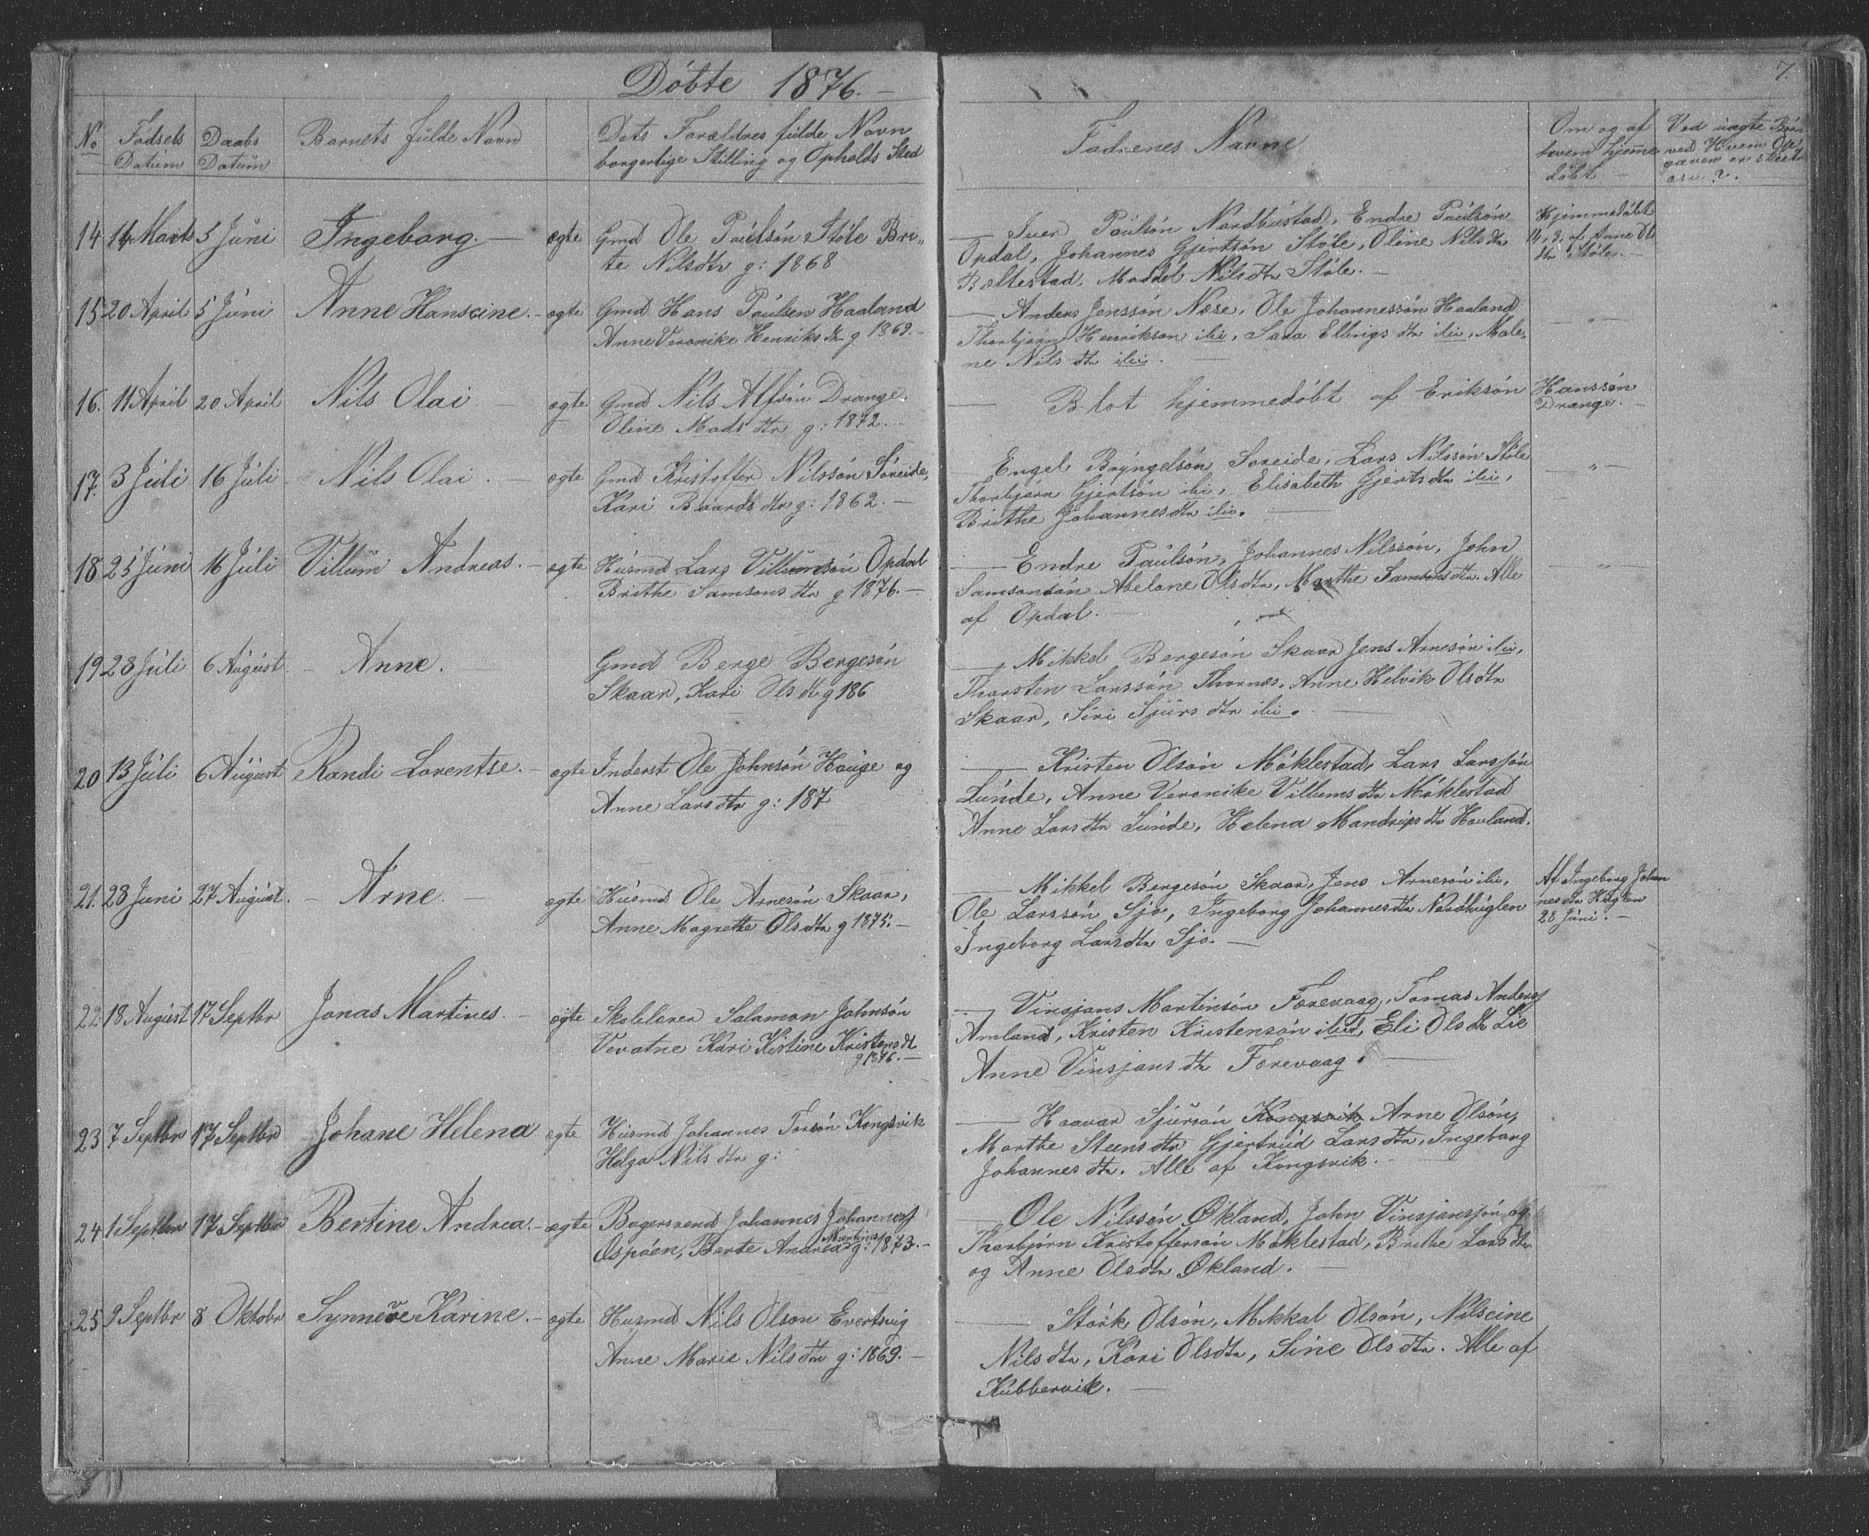 Døbte 1876.
7
No
Fødsels Datum
Daabs Datum
Barnets fulde Navn
Dets Forældres fulde Navn
borgerlige Stilling og Opholds Sted
Fadrenes Navne
Om og af
hvem hjemme
døbt
Ved uægte Børn
ved Hvem Op
gaven er skeet
14 14 Marts 5 Juni Ingeborg. — ægte Gmd Ole Paulsøn Støle Bri-
te Nilsdtr g: 1868
— Iver Paulsøn Nordhustad, Endre Paulsøn
Opdal, Johannes Gjertsøn Støle, Oline Nilsdtr
Bæltestad, Madsel Nilsdtr Støle. —
Hjemmedøbt
14, 3, af Anne Ols
dtr Støle. —
15 20 April 5 Juni Anne Hanseine. — ægte Gmd Hans Paulsen Haaland
Anne Veronike Henriksdtr g 1869 —
— Anders Jenssøn Nese, Ole Johannessøn Haaland
Thorbjørn Henriksøn ibi, Sara Ellingsdtr ibi, Male-
ne Nilsdtr ibi. —
— " —
16. 11 April 20 April Nils Olai. — ægte Gmd Nils Alfsøn Drange.
Oline Madsdtr g: 1872. —
— Blot hjemmedøbt af Eriksøn Hanssøn
Drange. —
17. 3 Juli 16 Juli Nils Olai. — ægte Gmd Kristoffer Nilssøn Søreide,
Kari Baardsdtr g: 1862. —
— Engel Brÿngelsøn Soreide, Lars Nilssøn Støle
Thorbjørn Gjertsøn ibi, Elisabeth Gjertsdtr ibi,
Brithe Johannesdtr ibi. —
— " —
18 25 Juni 16 Juli Villum Andreas. — ægte Husmd Lars Villumsøn Opdal
Brithe Samsonsdtr g 1876. —
— Endre Paulsøn, Johannes Nilssøn, John
Samsonsøn Abelone Olsdtr, Marthe Samsonsdtr. Alle
af Opdal. —
— " —
19 28 Juli 6 August — Anne. — Gmd Berge Bergesøn
Skaar, Kari Olsdtr g 186
— Mikkel Bergesøn Skaar Jens Arnesøn ibi,
Thorsten Larssøn Thornes, Anne Helvik Olsdtr
Skaar, Siri Sjursdtr ibi. —
20 13 Juli 6 August Randi Lorentse. — ægte Inderst Ole Johnsøn Hauge og
Anne Larsdtr g: 187
— Kristen Olsøn Møklestad, Lars Larssøn
Lunde, Anne Veronike Villumsdtr Møklestad
Anne Larsdtr Lunde, Helena Mandrupsdtr Hovland.
21. 28 Juni 27 August. — Arne. — ægte Husmd Ole Arnesøn Skaar,
Anne Magrethe Olsdtr g 1875. —
— Mikkel Bergesøn Skaar, Jens Arnesøn ibi,
Ole Larssøn Sjø, Ingeborg Johannesdtr Nordhuglen
Ingeborg Larsdtr Sjo. —
Af Ingeborg Johan
nesdtr Huglen
28 Juni. —
22 18 August 17 Septbr Jonas Martines. — ægte Skolelærer Salamon Johnsøn
Vevatne Kari Kirstine Kristensdt
g 1876. —
— Vinsjans Martinsøn Færevaag, Tomas Anders
Amland, Kristen Kristensøn ibi, Eli Olsdtr Lie
Anne Vinsjansdtr Færevaag. —
23 7 Septbr 17 Septbr Johane Helena ægte Husmd Johannes Torsøn Kongsvik
Helga Nilsdtr g:
— Haavar Sjursøn Kongsvik Arne Olsøn,
Marthe Steensdtr Gjertrud Larsdtr, Ingeborg
Johannesdtr. Alle af Kongsvik. —
24 1 Septbr 17 Septbr Bertine Andrea. — ægte Bagersvend Johannes Johannes
Ospøen, Berte Andrea Martine g: 1873. —
— Ole Nilssøn Økland, John Vinsjansøn og
Thorbjørn Kristoffersøn Møklestad, Brithe Larsdtr
og Anne Olsdtr Økland. —
25 9 Septbr 8 Oktobr Synneve Karine. — ægte Husmd Nils Olson Evertsvig
Anne Marie Nilsdtr g: 1869. —
— Størk Olsøn, Mikkal Olsøn, Nilseine
Nilsdtr, Kari Olsdtr, Sine Olsdtr. Alle af
Kubbervik. —